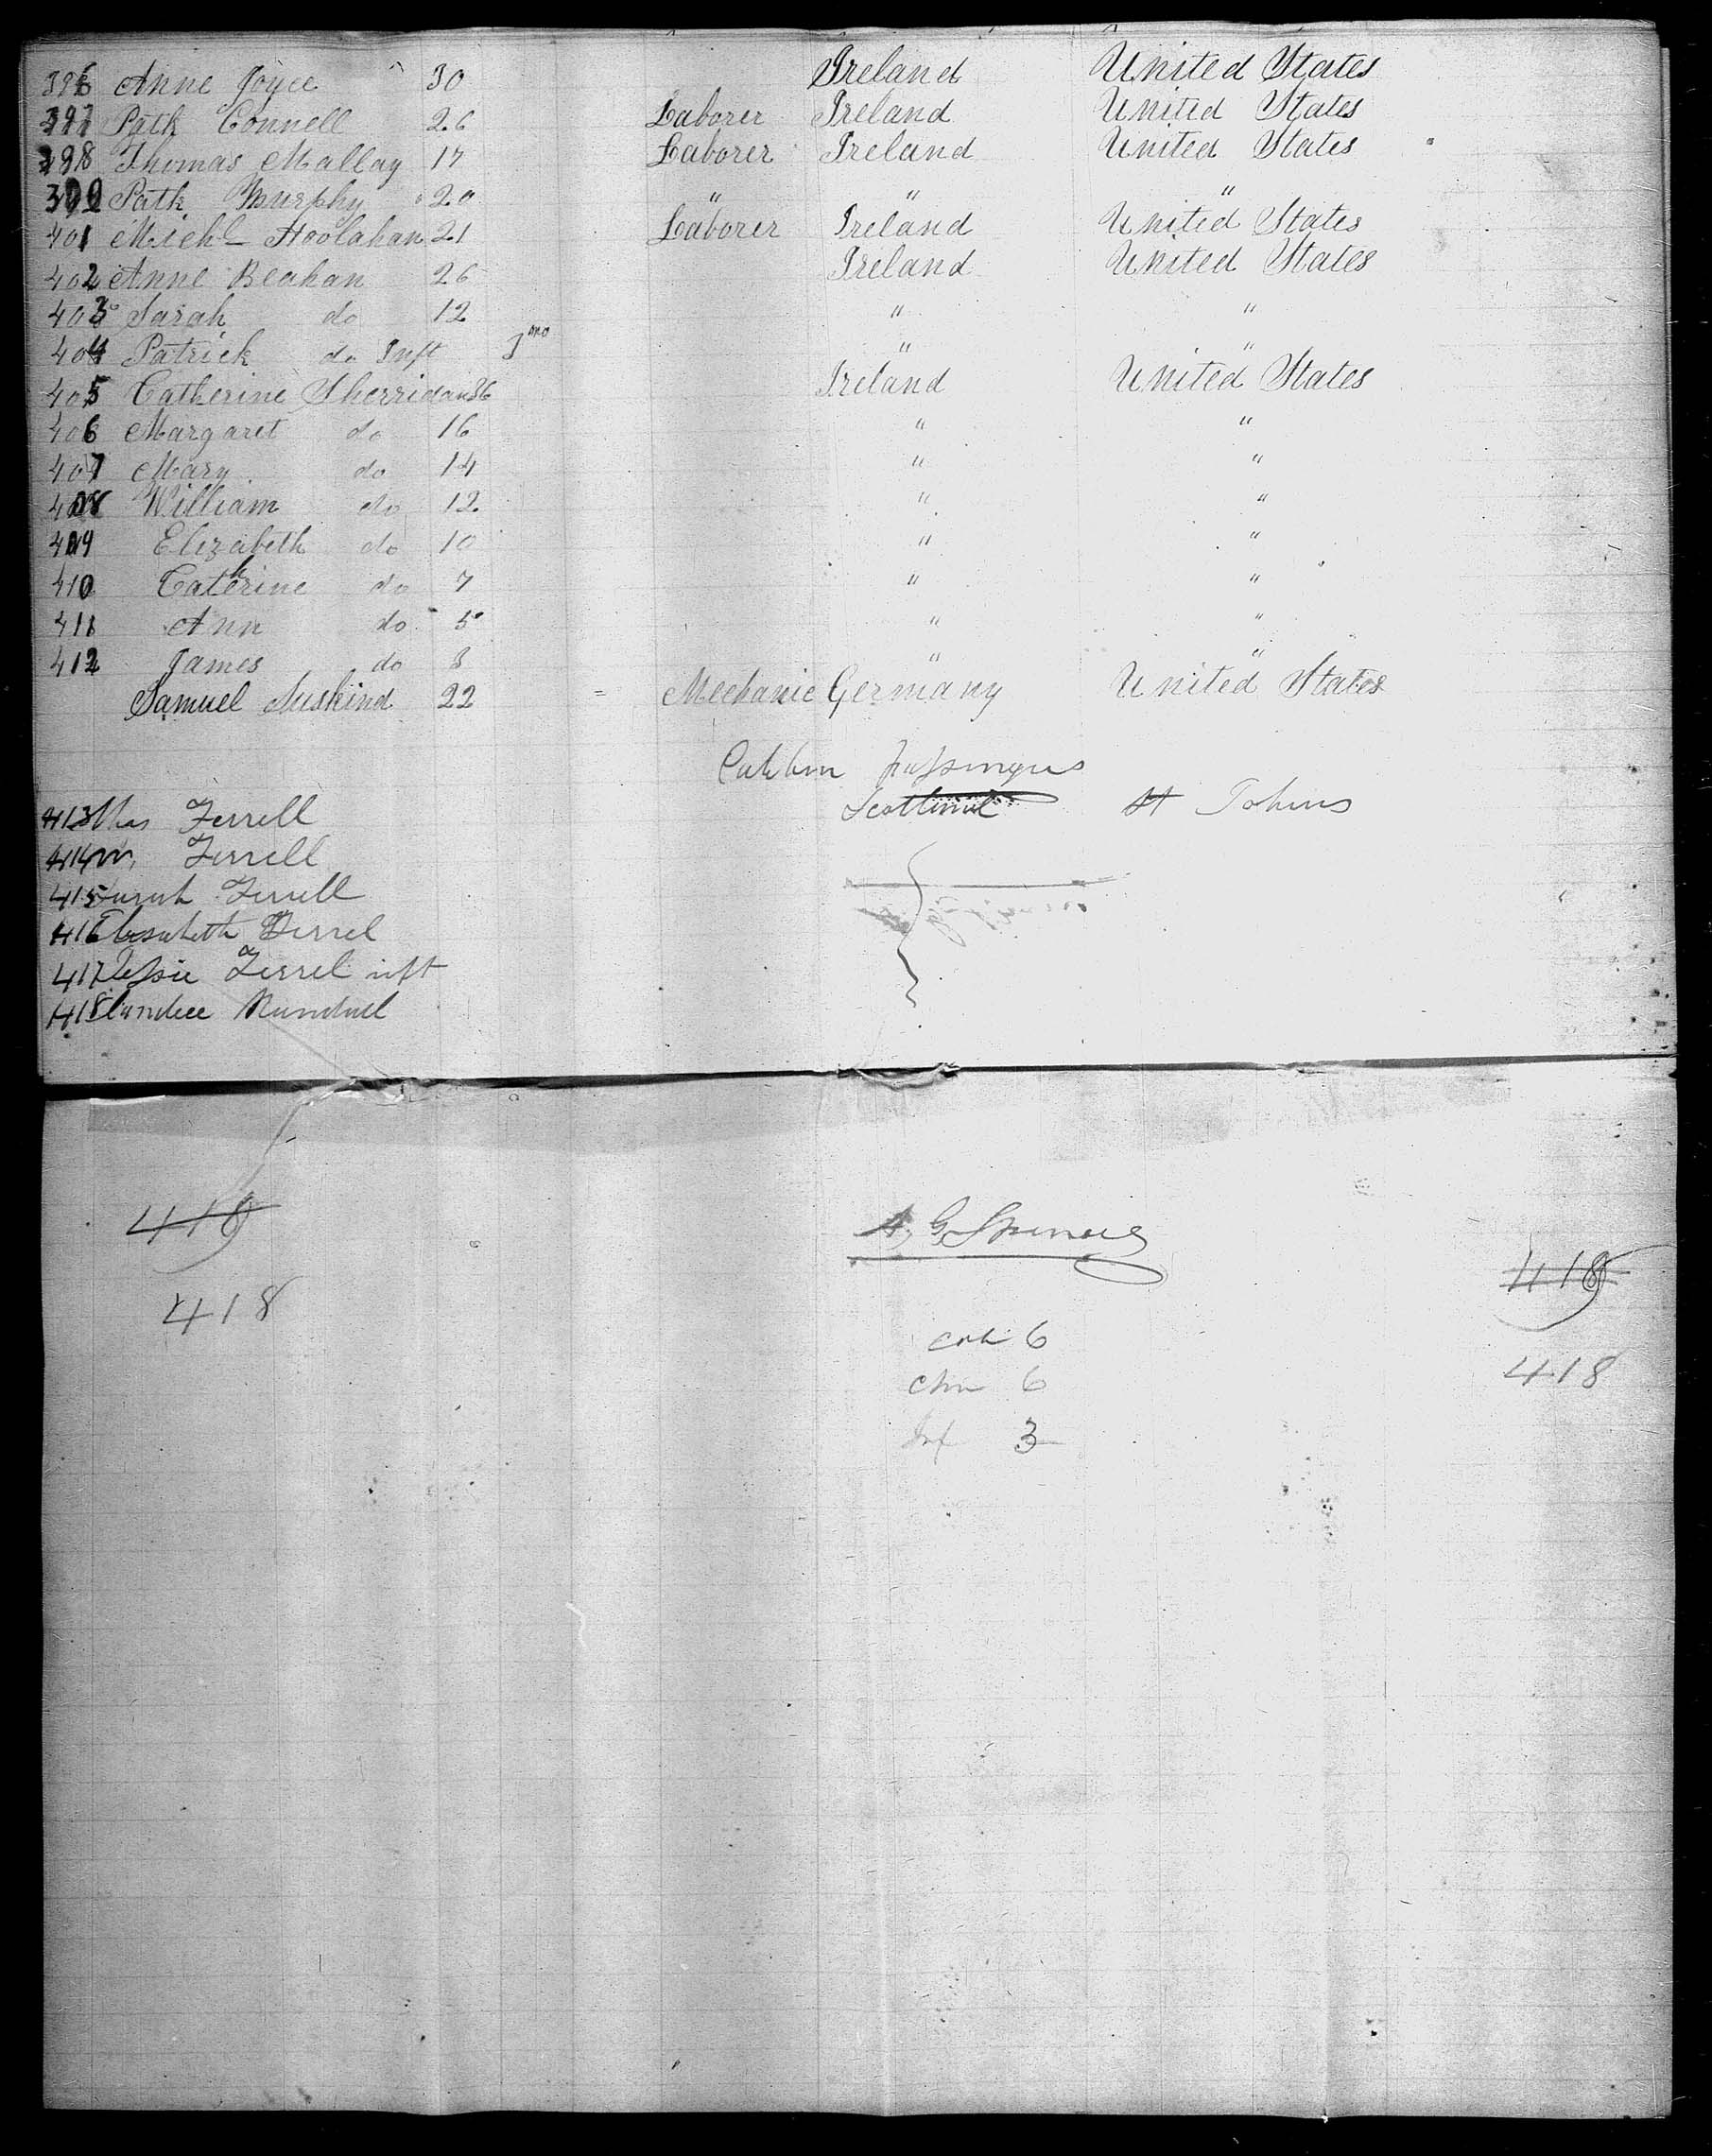 396 Anne Joyce 30 Ireland United States
397 Patk Connell 26 Laborer Ireland United States
398 Thomas Mallay 17 Laborer Ireland United States
399 Patk Murphy 20 " " "
401 Michl Hoolahan 21 Laborer Ireland United States
402 Anne Beahan 26 Ireland United States
403 Sarah do 12 " "
404 Patrick do Inft 3 mo " "
405 Catherine Sherridan 36 Ireland United States
406 Margaret do 16 " "
407 Mary do 14 " "
408 William do 12 " "
409 Elizabeth do 10 " "
410 Catherine do 7 " "
411 Ann do 5 " "
412 James do 3 " "
Samuel Suskind 22 Mechanic Germany United States
Cabbin passengers
413 Thos Ferrell Scotland St Johns
414 Ferrell
415 Sarah Ferrell
416 Elisabeth Ferrel
417 Jessie Ferrel inft
418
418 A. G.
418
418
cab 6
chn 6
418
Inf 3